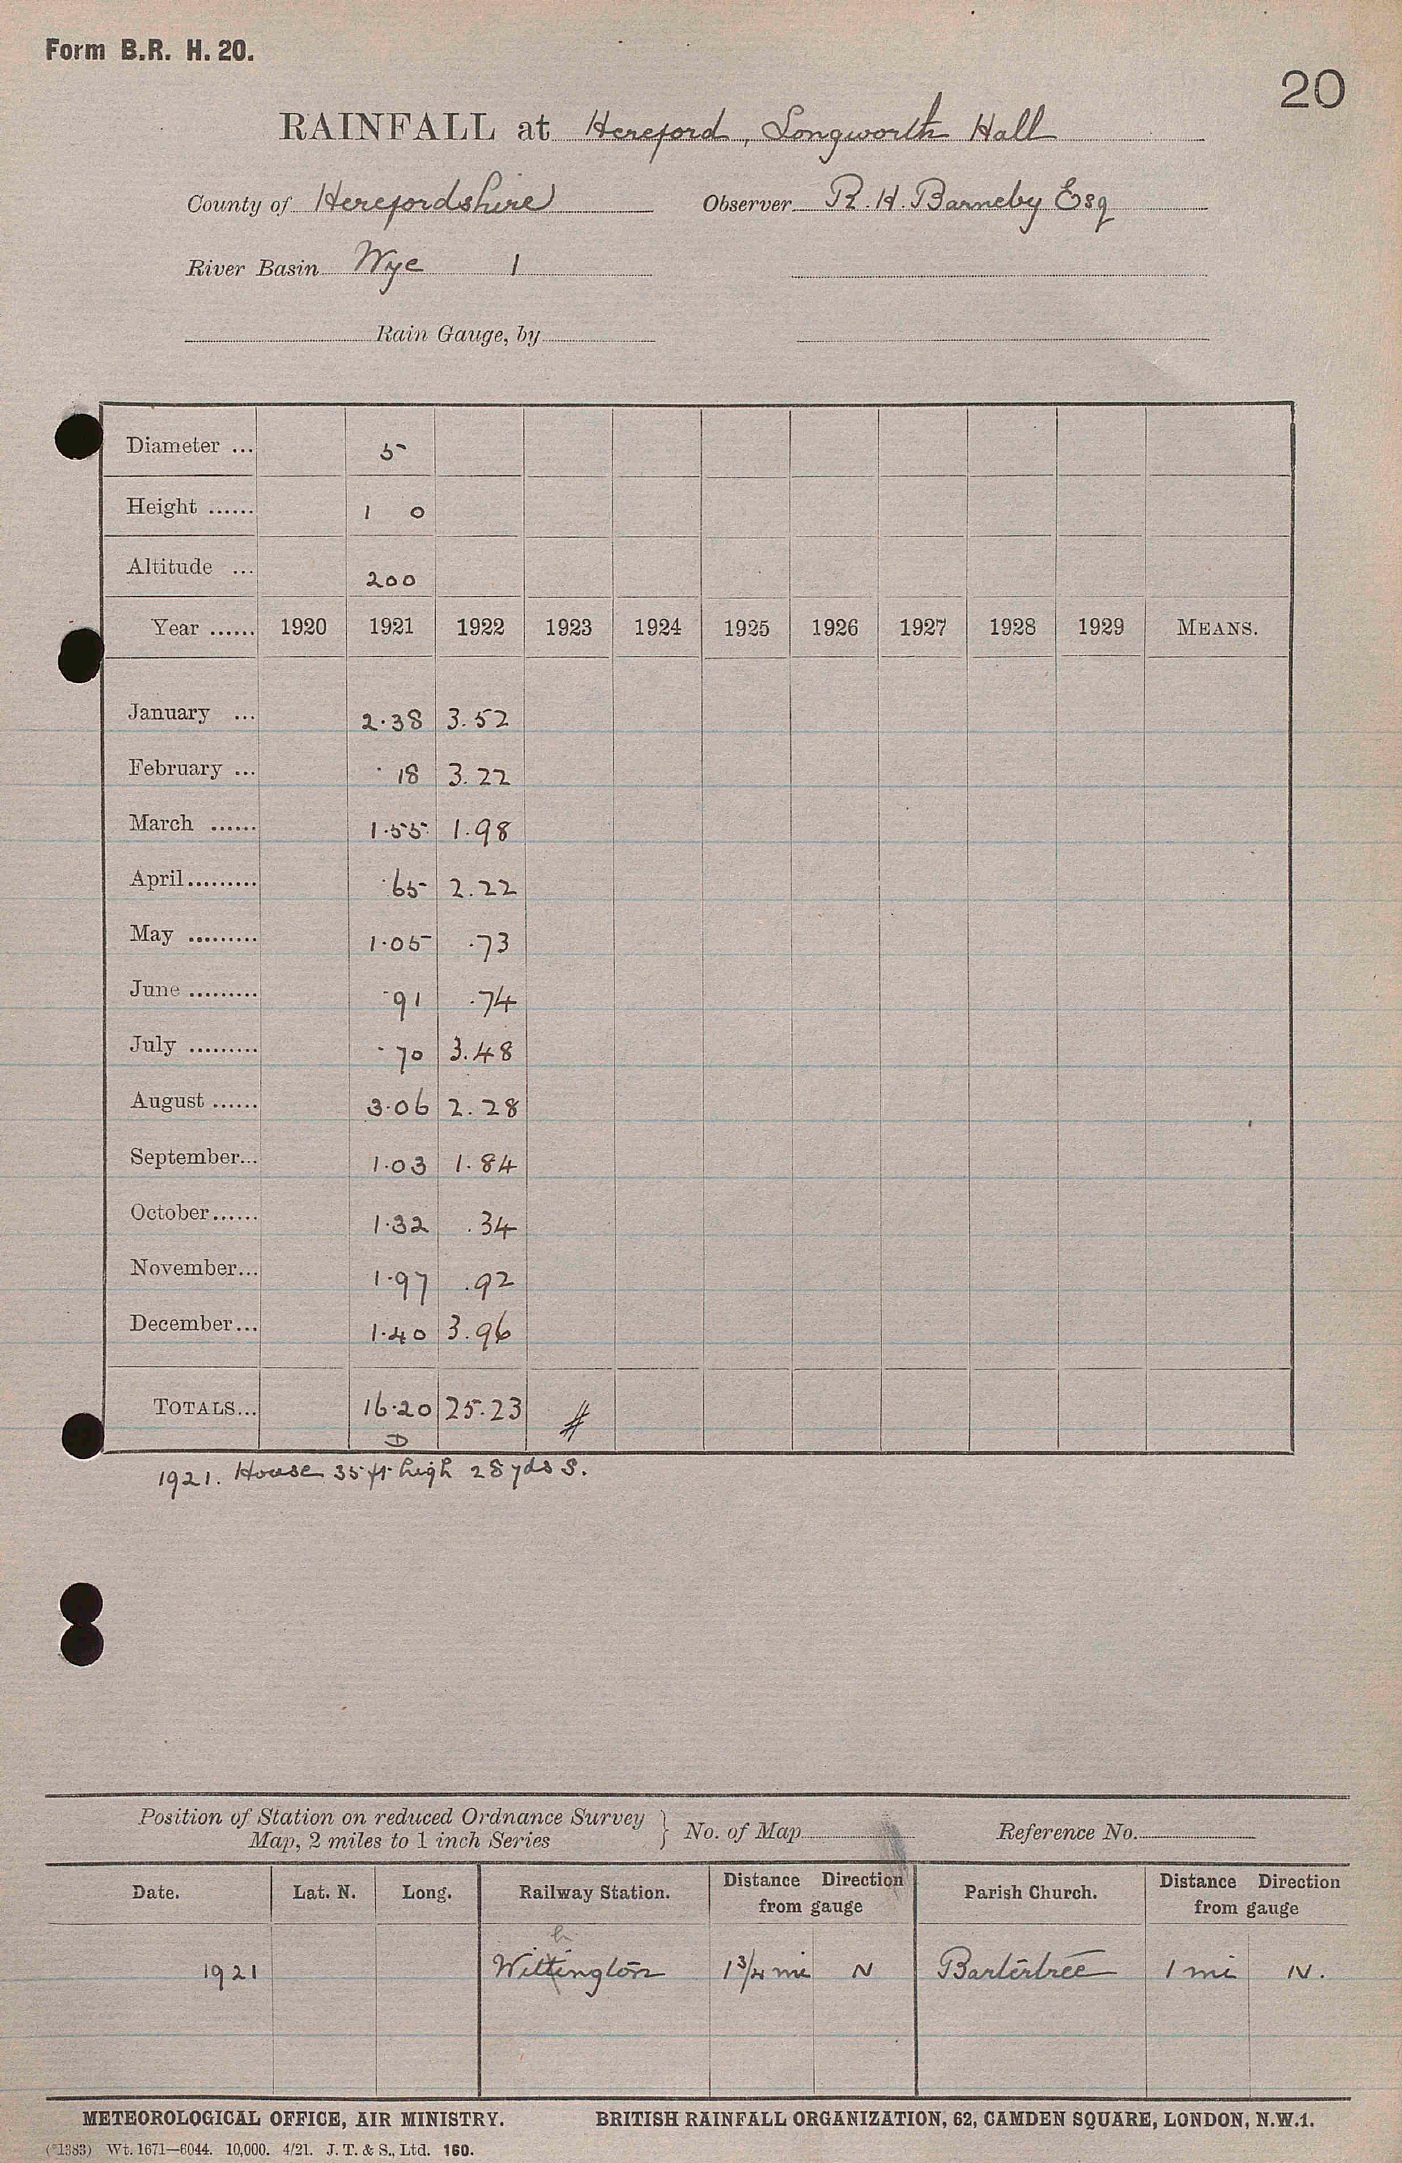 Form B.R. H. 20.
20
RAINFALL at Hereford, Longworth Hall
County of Herefordshire Observer R. H. Barneby Esq
River Basin Wye 1
Rain Gauge, by
Diameter ... 5
Height ...... 1 0
Altitude ... 200
Year ...... 1920 1921 1922 1923 1924 1925 1926 1927 1928 1929 MEANS.
January ... 2.38 3.52
February ... .18 3.22
March ...... 1.55 1.98
April......... .65 2.22
May ......... 1.05 .73
June ......... .91 .74
July ......... .70 3.48
August ...... 3.06 2.28
September... 1.03 1.84
October...... 1.32 .34
November... 1.97 .92
December... 1.40 3.96
TOTALS... 16.20 25.23 #
D
1921. House 35 ft high 28 yds S.
Position of Station on reduced Ordnance Survey
Map, 2 miles to 1 inch Series } No. of Map Reference No.
Date. Lat. N. Long. Railway Station. Distance Direction from gauge Parish Church. Distance Direction from gauge
h
1921 Wittington 1 3/4 mi N Bartertree 1 mi N.
METEOROLOGICAL OFFICE, AIR MINISTRY. BRITISH RAINFALL ORGANIZATION, 62, CAMDEN SQUARE, LONDON, N.W.1.
(*1383) Wt. 1671—6044. 10,000. 4/21. J. T. & S., Ltd. 160.